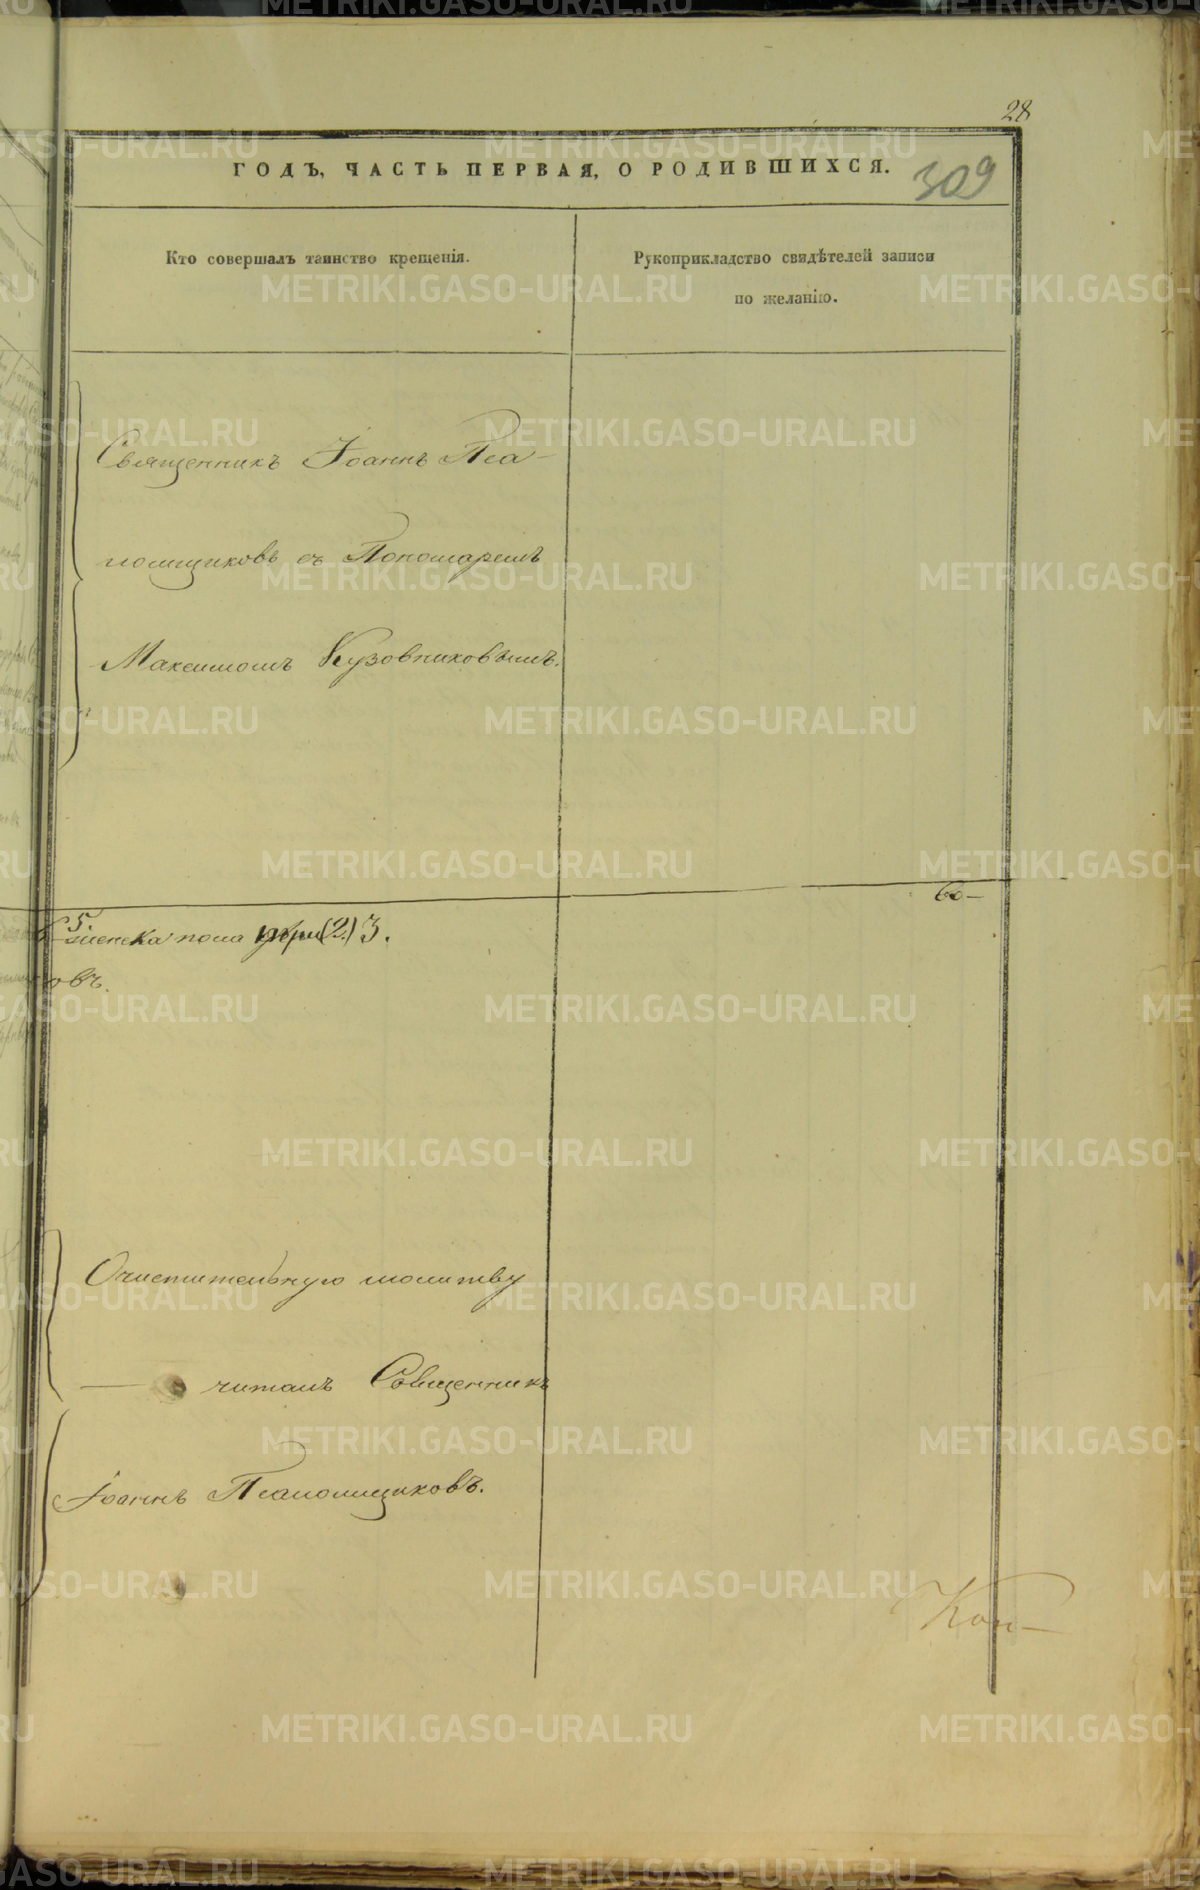 28
309
ГОДЪ, ЧАСТЬ ПЕРВАЯ, О РОДИВШИХСЯ.
Кто совершалъ таинство крещенія.
Рукоприкладство свидѣтелей записи
по желанію.
Священникъ Іоаннъ Пса-
ломщиковъ съ Пономаремъ
Максимомъ Кузовниковымъ.
5
женска пола (2) 3.
овъ.
Очистительную молитву
читалъ Священникъ
Іоаннъ Псаломщиковъ.
METRIKI.GASO-URAL.RU